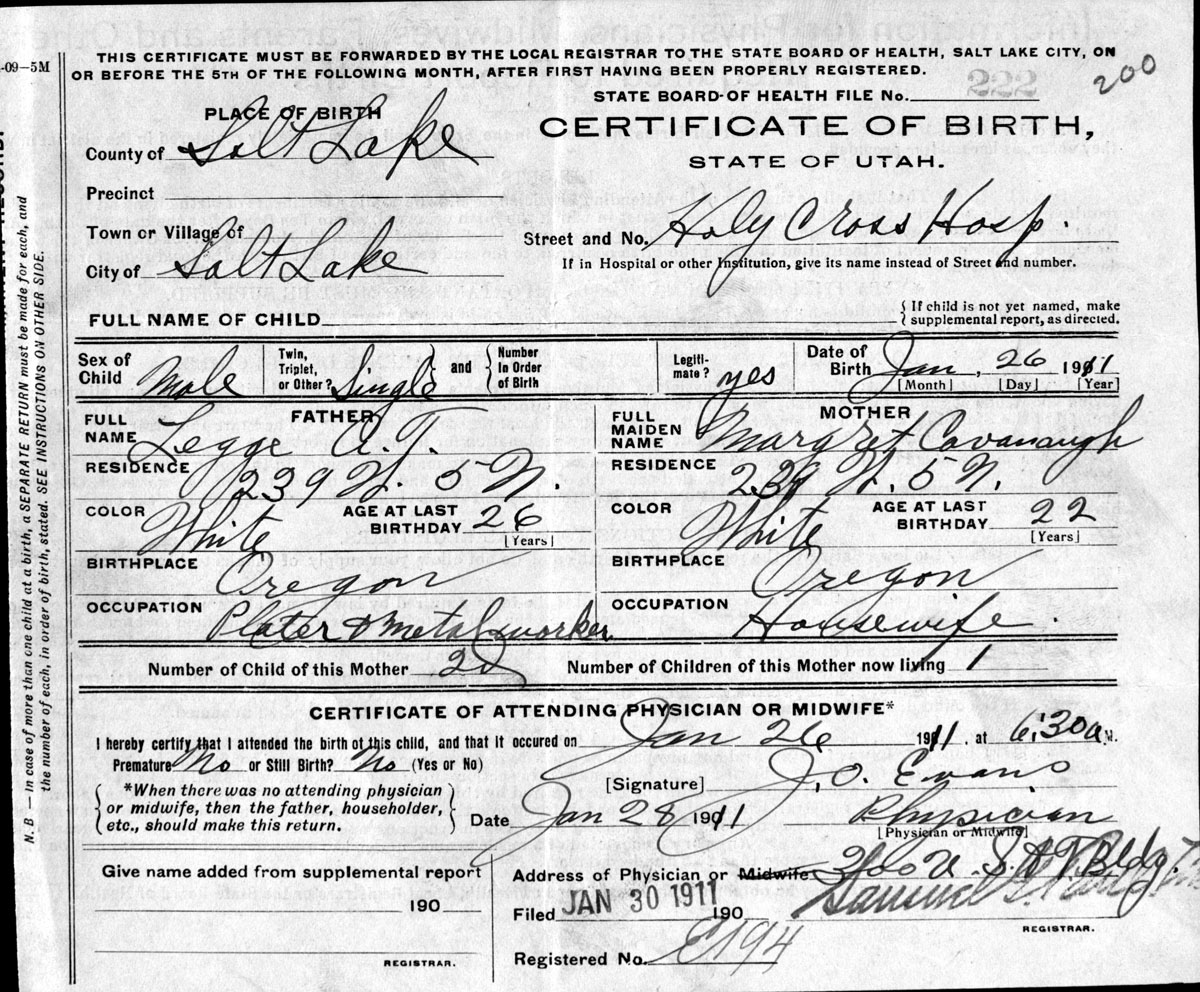 THIS CERTIFICATE MUST BE FORWARDED BY THE LOCAL REGISTRAR TO THE STATE BOARD OF HEALTH, SALT LAKE CITY, ON
-09-5M
OR BEFORE THE 5TH OF THE FOLLOWING MONTH, AFTER FIRST HAVING BEEN PROPERLY REGISTERED.
200
222
STATE BOARD OF HEALTH FILE No.
PLACE OF BIRTH
CERTIFICATE OF BIRTH,
STATE OF UTAH.
County of Salt Lake
Precinct
Town or Village of
Street and No. Holy Cross Hosp.
City of Salt Lake
If in Hospital or other Institution, give its name instead of Street and number.
FULL NAME OF CHILD
{ If child is not yet named, make
supplemental report, as directed.
Sex of Child Male
Twin, Triplet, or Other? Single } and { Number In Order of Birth
Legiti-mate? yes
Date of Birth Jan, 26 1911
[Month] [Day] [Year]
FATHER
FULL NAME Legge A. T.
MOTHER
FULL MAIDEN NAME Margret Cavanaugh
RESIDENCE 239 W. 5 N.
RESIDENCE 239 W. 5 N.
COLOR White AGE AT LAST BIRTHDAY 26 [Years]
COLOR White AGE AT LAST BIRTHDAY 22 [Years]
BIRTHPLACE Oregon
BIRTHPLACE Oregon
OCCUPATION Plater & metal worker
OCCUPATION Housewife.
Number of Child of this Mother 2d Number of Children of this Mother now living 1
CERTIFICATE OF ATTENDING PHYSICIAN OR MIDWIFE*
I hereby certify that I attended the birth of this child, and that it occured on Jan 26 1911, at 6:30 a.M.
Premature No or Still Birth? No (Yes or No)
[Signature] J. O. Evans
{ *When there was no attending physician
or midwife, then the father, householder,
etc., should make this return. }
Date Jan 28 1911 Physician
[Physician or Midwife]
Give name added from supplemental report
Address of Physician or Midwife Bldg.
190
Filed JAN 30 1911 190 Samuel
REGISTRAR.
Registered No. E194
REGISTRAR.
N. B — In case of more than one child at a birth, a SEPARATE RETURN must be made for each, and
the number of each, in order of birth, stated. SEE INSTRUCTIONS ON OTHER SIDE.